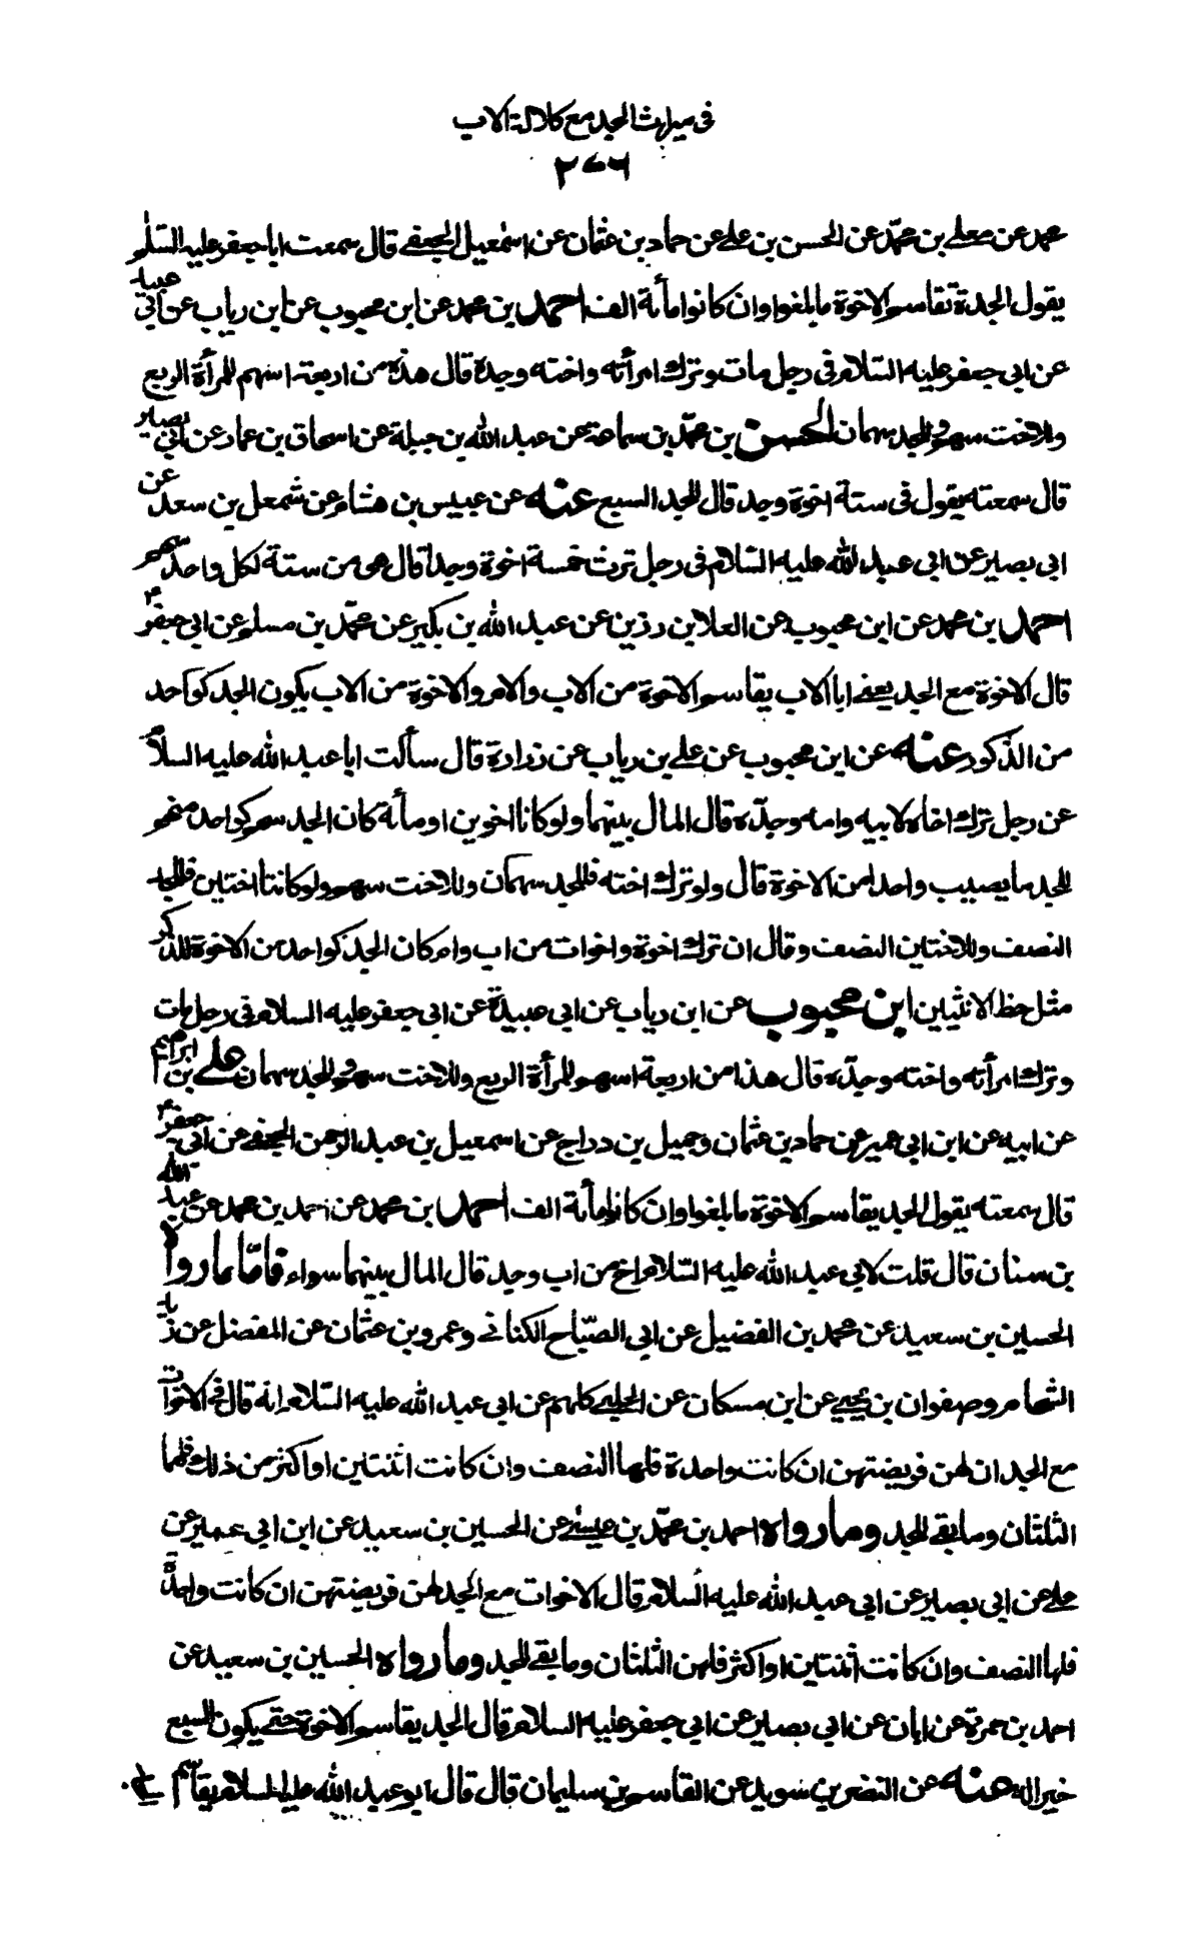 فى ميراث الجد مع كلالة الاب
٢٧٦
محمد عن معلى بن محمّد عن الحسن بن على عن حماد بن عثمان عن اسمعيل الجعفى قال سمعت ابا جعفر عليه السّلم
يقول الجد يقاسم الاخوة ما بلغوا وان كانوا مأية الف احمد بن محمد عن ابن محبوب عن ابن رياب عن ابى عبيدة
عن ابى جعفر عليه السّلام فى رجل مات وترك امرأته واخته وجده قال هذه من اربعة اسهم للمرأة الربع
وللاخت سهم وللجد سهمان الحسن بن محمّد بن سماعة عن عبد الله بن جبلة عن اسحاق بن عمار عن ابى بصير
قال سمعته يقول فى ستة اخوة وجد قال للجد السبع عنه عن عبيس بن هشام عن شمعل بن سعد عن
ابى بصير عن ابى عبد الله عليه السّلام فى رجل ترك خمسة اخوة وجدا قال هى من ستة لكل واحد سهم
احمد بن محمد عن ابن محبوب عن العلا بن رزين عن عبد الله بن بكير عن محمّد بن مسلم عن ابى جعفر ع
قال الاخوة مع الجد يعنى ابا الاب يقاسم الاخوة من الاب والام والاخوة من الاب يكون الجد كواحد
من الذكور عنه عن ابن محبوب عن على بن رياب عن زرارة قال سألت ابا عبد الله عليه السلام
عن رجل ترك اخاه لابيه وامه وجدّه قال المال بينهما ولو كانا اخوين او مأية كان الجد معهم كواحد منهم
للجد ما يصيب واحدا من الاخوة قال ولو ترك اخته فللجد سهمان وللاخت سهم ولو كانتا اختين فللجد
النصف وللاختين النصف وقال ان ترك اخوة واخوات من اب وام كان الجد كواحد من الاخوة للذكر
مثل حظ الانثيين ابن محبوب عن ابن رياب عن ابى عبيدة عن ابى جعفر عليه السلام فى رجل مات
وترك امرأته واخته وجدّه قال هذا من اربعة اسهم للمرأة الربع وللاخت سهم وللجد سهمان على بن ابراهيم
عن ابيه عن ابن ابى عمير عن حماد بن عثمان وجميل بن دراج عن اسمعيل بن عبد الرحمن الجعفى عن ابى جعفر ع
قال سمعته يقول الجد يقاسم الاخوة ما بلغوا وان كانوا مأية الف احمد بن محمد عن احمد بن محمد عن عبد الله
بن سنان قال قلت لابى عبد الله عليه السّلام اخ من اب وجد قال المال بينهما سواء فامّا ما رواه
الحسين بن سعيد عن محمد بن الفضيل عن ابى الصبّاح الكنانى وعمرو بن عثمان عن المفضل عن زيد
الشحام وصفوان بن يحيى عن ابن مسكان عن الحلبى كلهم عن ابى عبد الله عليه السّلام انه قال فى الاخوات
مع الجد ان لهن فريضتهن ان كانت واحدة فلها النصف وان كانت اثنتين او اكثر من ذلك فلهما
الثلثان وما بقى للجد وما رواه احمد بن محمّد بن عيسى عن الحسين بن سعيد عن ابن ابى عمير عن
على عن ابى بصير عن ابى عبد الله عليه السلام قال الاخوات مع الجد لهن فريضتهن ان كانت واحدة
فلها النصف وان كانت اثنتين او اكثر فلهن الثلثان وما بقى للجد وما رواه الحسين بن سعيد عن
احمد بن حمزة عن ابان عن ابى بصير عن ابى جعفر عليه السلام قال الجد يقاسم الاخوة حتى يكون السبع
خيرا له عنه عن النضر بن سويد عن القاسم بن سليمان قال قال ابو عبد الله عليه السلام يقاسم